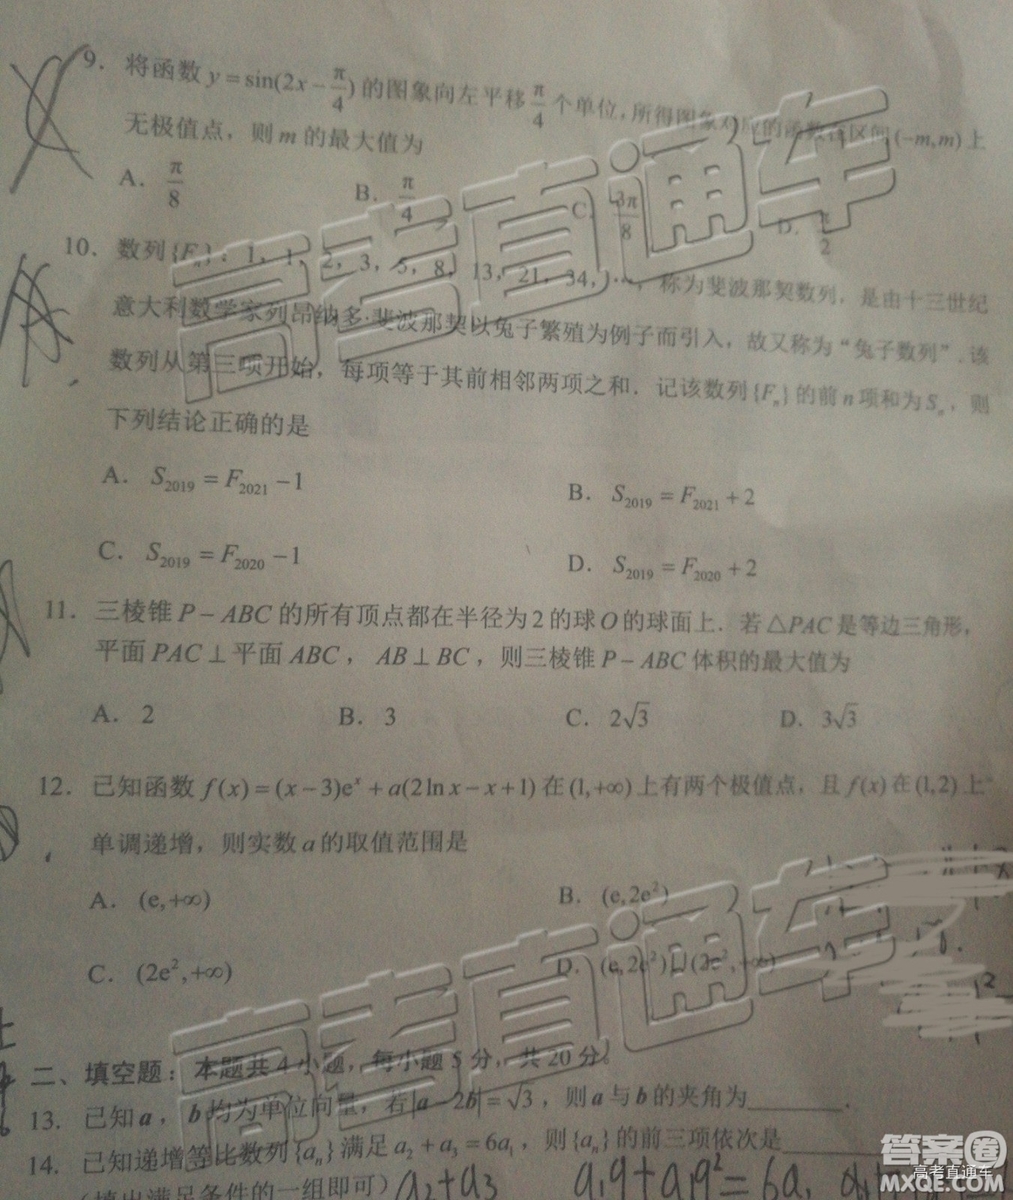 9. 将函数 y = sin(2x - π/4) 的图象向左平移 π/4 个单位, 所得图象对应的函数在区间 (-m, m) 上
无极值点, 则 m 的最大值为
A. π/8 B. π/4 C. 3π/8 D. π/2
10. 数列 {Fₙ}: 1, 1, 2, 3, 5, 8, 13, 21, 34, …, 称为斐波那契数列, 是由十三世纪
意大利数学家列昂纳多·斐波那契以兔子繁殖为例子而引入, 故又称为“兔子数列”. 该
数列从第三项开始, 每项等于其前相邻两项之和. 记该数列 {Fₙ} 的前 n 项和为 Sₙ, 则
下列结论正确的是
A. S₂₀₁₉ = F₂₀₂₁ - 1 B. S₂₀₁₉ = F₂₀₂₁ + 2
C. S₂₀₁₉ = F₂₀₂₀ - 1 D. S₂₀₁₉ = F₂₀₂₀ + 2
11. 三棱锥 P - ABC 的所有顶点都在半径为 2 的球 O 的球面上. 若 △PAC 是等边三角形,
平面 PAC ⊥ 平面 ABC, AB ⊥ BC, 则三棱锥 P - ABC 体积的最大值为
A. 2 B. 3 C. 2√3 D. 3√3
12. 已知函数 f(x) = (x - 3)eˣ + a(2ln x - x + 1) 在 (1, +∞) 上有两个极值点, 且 f(x) 在 (1, 2) 上
单调递增, 则实数 a 的取值范围是
A. (e, +∞) B. (e, 2e²)
C. (2e², +∞) D. (e, 2e²)∪(2e², +∞)
二、填空题: 本题共 4 小题, 每小题 5 分, 共 20 分。
13. 已知 a, b 均为单位向量, 若 |a - 2b| = √3, 则 a 与 b 的夹角为______.
14. 已知递增等比数列 {aₙ} 满足 a₂ + a₃ = 6a₁, 则 {aₙ} 的前三项依次是
(填出满足条件的一组即可) a₂+a₃ a₁q+a₁q²=6a₁
高考直通车
高考直通车
答案圈
高考直通车
MXQE.COM